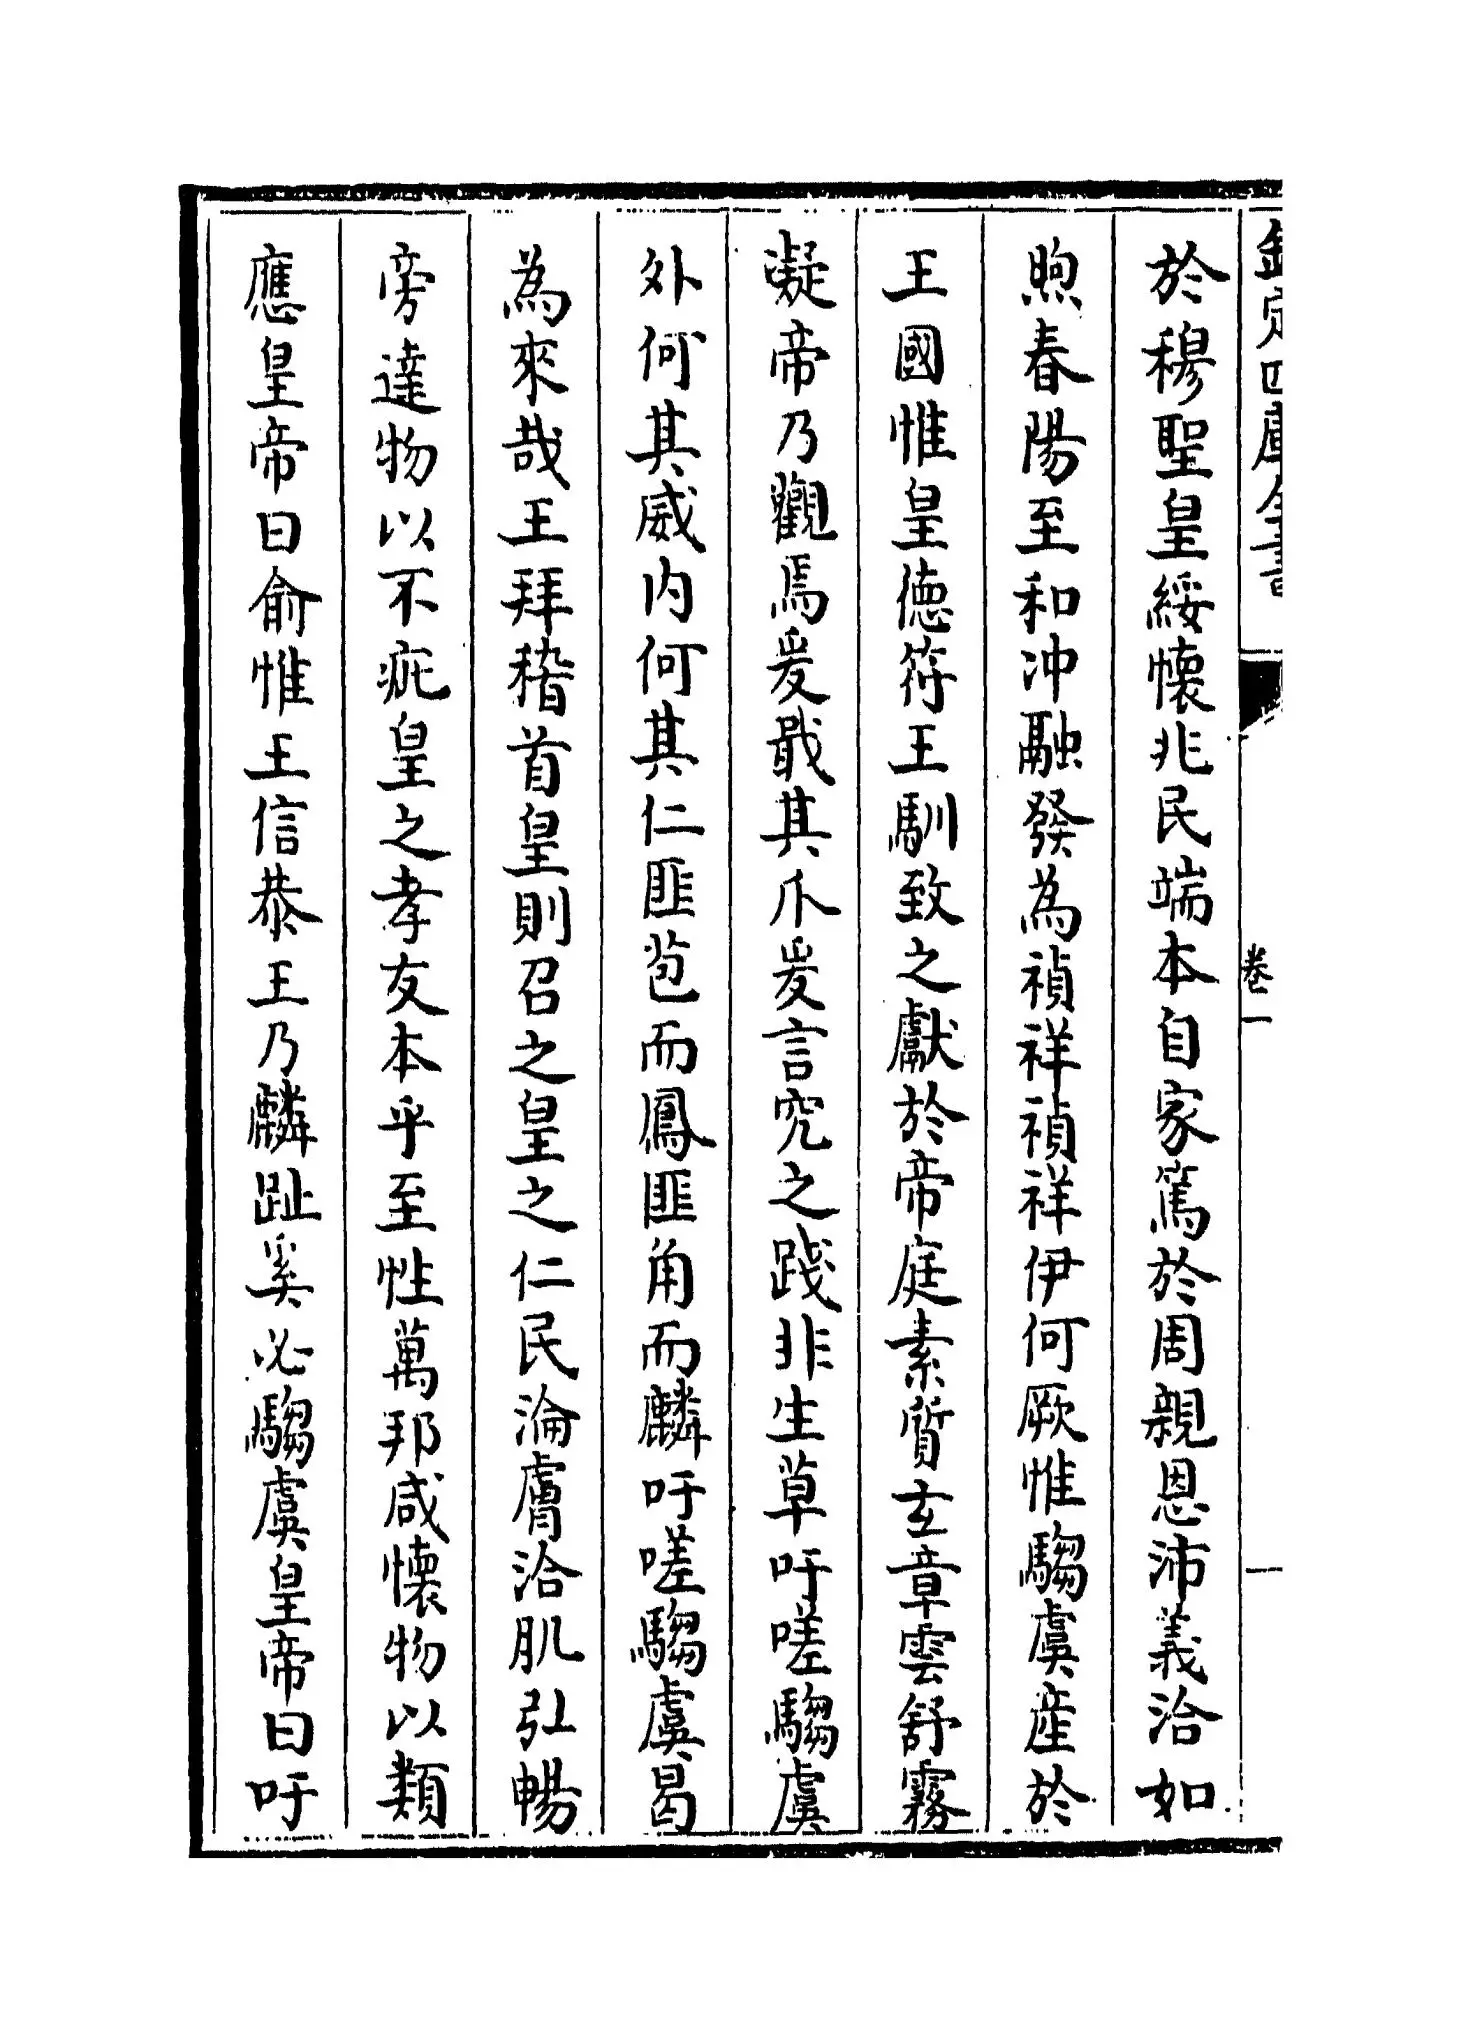 欽定四庫全書
卷一
一
於穆聖皇綏懷兆民端本自家篤於周親恩沛義洽如
煦春陽至和沖融發為禎祥禎祥伊何厥惟騶虞産於
王國惟皇德符王馴致之獻於帝庭素質玄章雲舒霧
凝帝乃觀焉爰戢其爪爰言究之踐非生草吁嗟騶虞
外何其威内何其仁匪苞而鳳匪角而麟吁嗟騶虞曷
為來哉王拜稽首皇則召之皇之仁民淪膚洽肌弘暢
旁達物以不疵皇之孝友本乎至性萬邦咸懷物以類
應皇帝曰俞惟王信恭王乃麟趾奚必騶虞皇帝曰吁